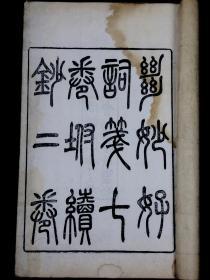 絕妙好
詞箋七
卷坿續
鈔二卷